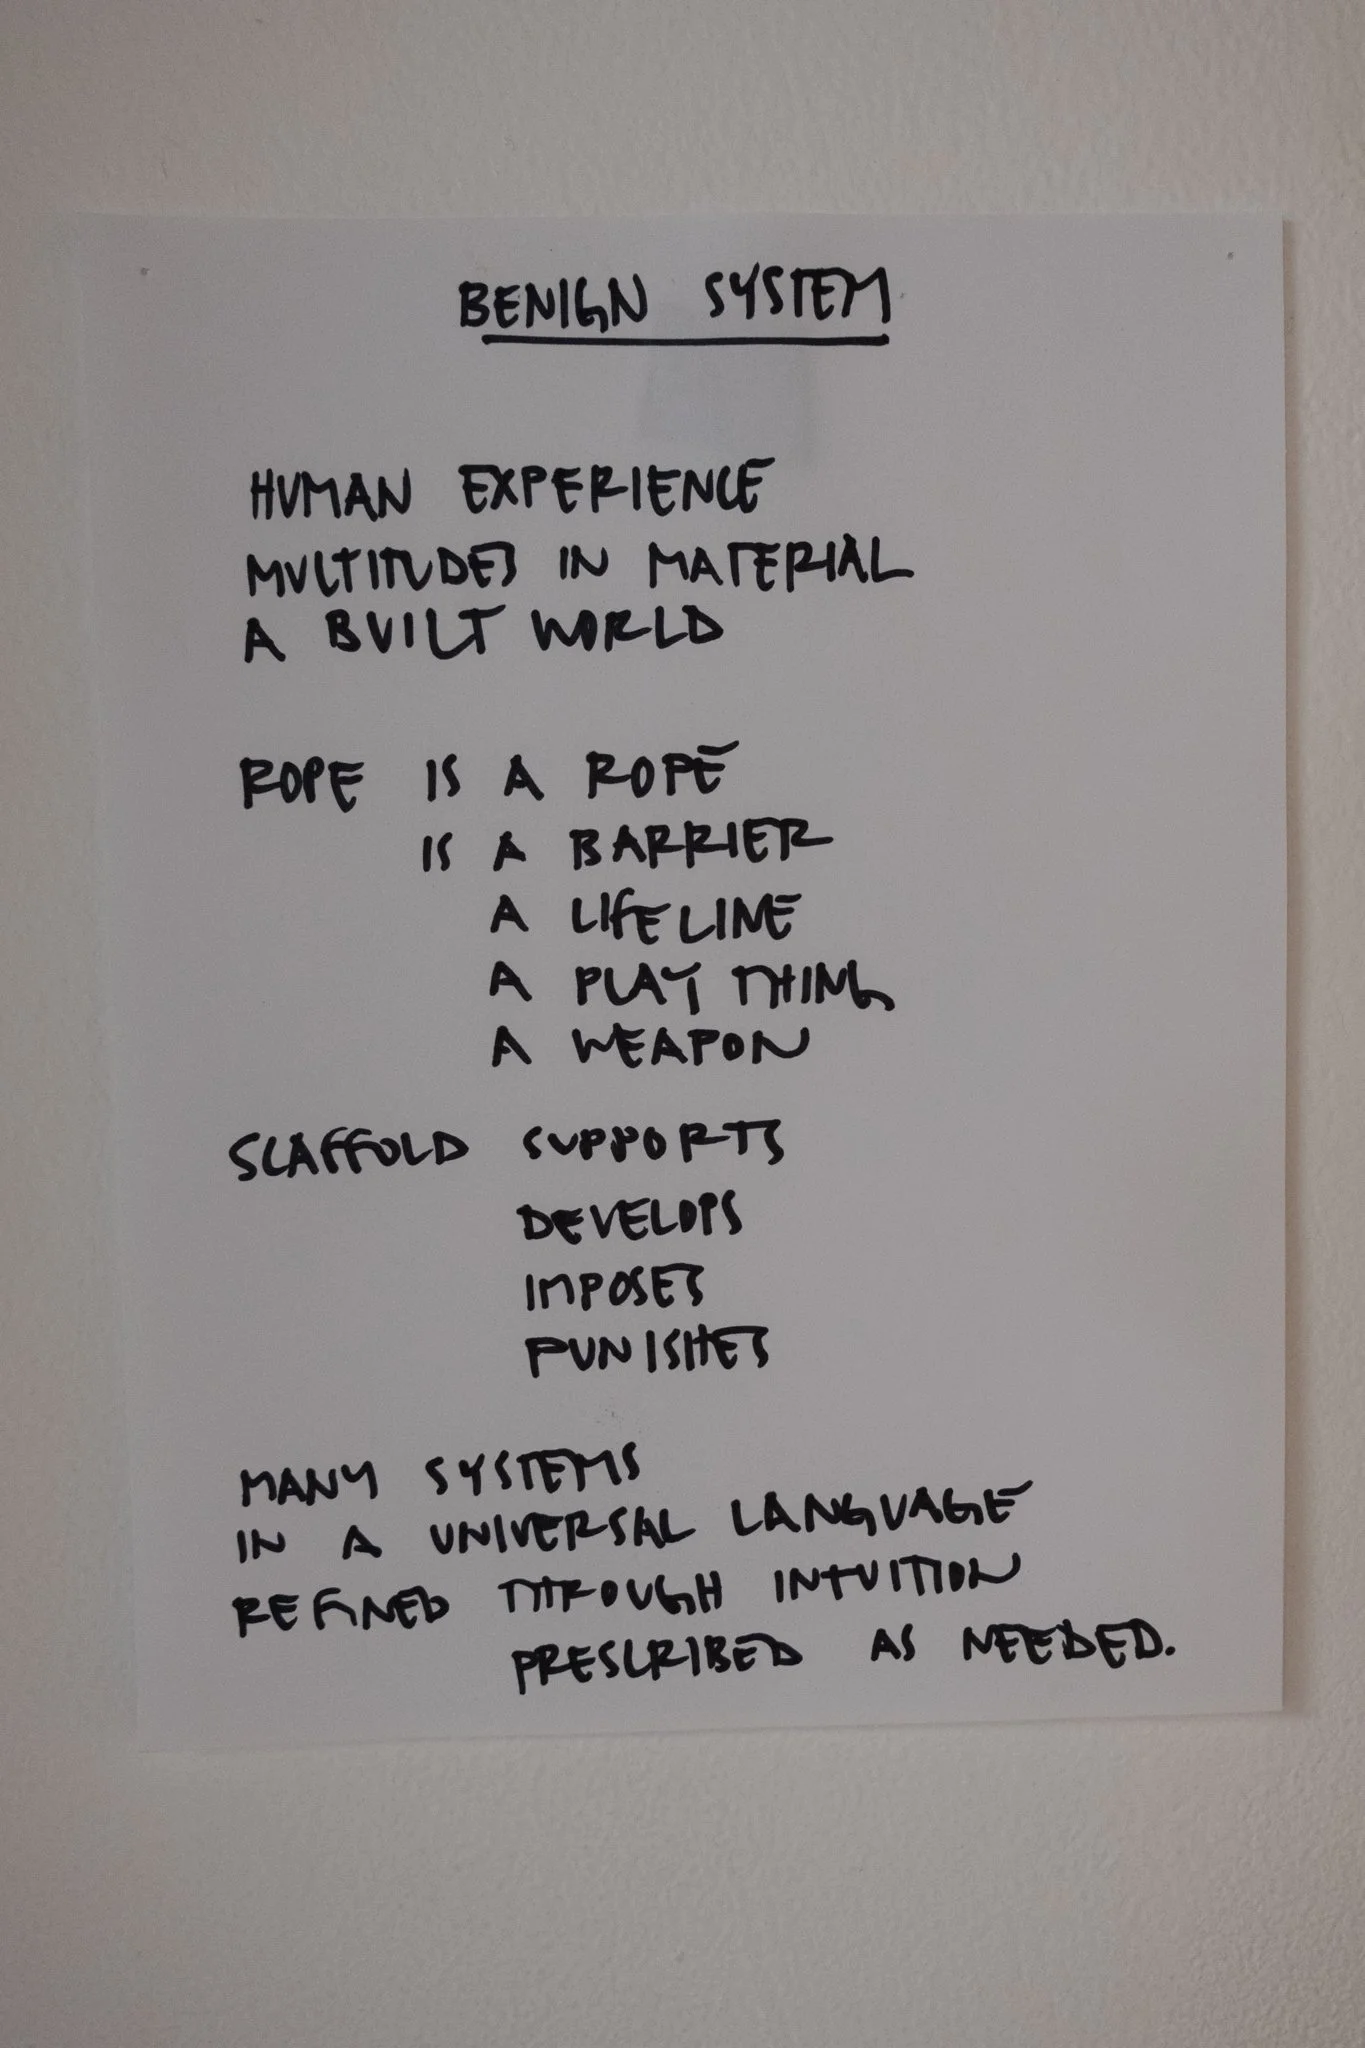 BENIGN SYSTEM
HUMAN EXPERIENCE
MULTITUDES IN MATERIAL
A BUILT WORLD
ROPE IS A ROPE
IS A BARRIER
A LIFELINE
A PLAY THING
A WEAPON
SCAFFOLD SUPPORTS
DEVELOPS
IMPOSES
PUNISHES
MANY SYSTEMS
IN A UNIVERSAL LANGUAGE
REFINED THROUGH INTUITION
PRESCRIBED AS NEEDED.